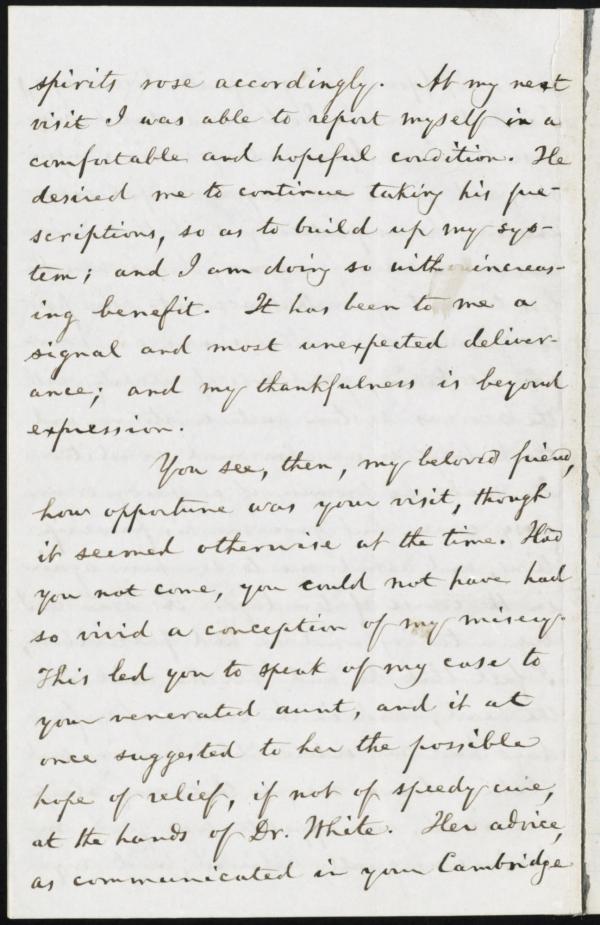 spirits rose accordingly. At my next
visit I was able to report myself in a
comfortable and hopeful condition. He
desired me to continue taking his pre-
scriptions, so as to build up my sys-
tem; and I am doing so with increas-
ing benefit. It has been to me a
signal and most unexpected deliver-
ance; and my thankfulness is beyond
expression.
You see, then, my beloved friend,
how opportune was your visit, though
it seemed otherwise at the time. Had
you not come, you could not have had
so vivid a conception of my misery.
This led you to speak of my case to
your venerated aunt, and it at
once suggested to her the possible
hope of relief, if not of speedy cure,
at the hands of Dr. White. Her advice,
as communicated in your Cambridge